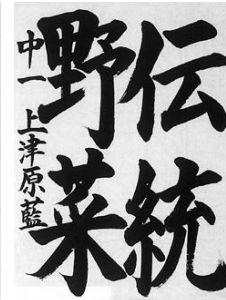 伝統
野菜
中一 上津原藍